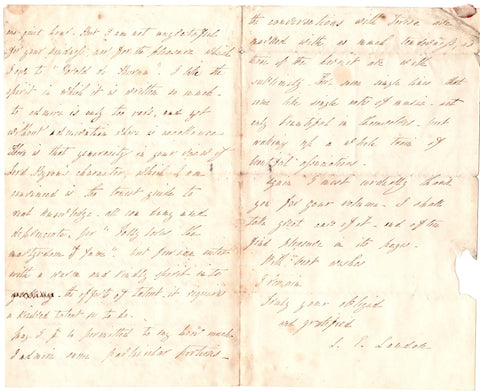 one quiet hour. But I am not ungrateful
for your kindness, nor for the pleasure which
I owe to "Harold de Burun". I like the
spirit in which it is written so much.
to admire is only too rare, and yet
without admiration there is no
There is that generosity in your view of
Lord Byron's character, which I am
convinced is the truest guide to
real knowledge. all can deny and
depreciate, for "Folly loves the
martyrdom of Fame". but for one enter
with a warm and kindly spirit into
the efforts of talent. it requires
a kindred talent so to do.
May I be permitted to say how much
I admire some particular portions -
the conversations with are
marked with as much tenderness, as
those of the are with
sublimity. There are some single lines that
are like single notes of music - not
only beautiful in themselves. but
waking up a whole train of
beautiful associations.
Again I most cordially thank
you for your volume. I shall
take great care of it. and often
find pleasure in its pages.
With best wishes
I remain
Truly your obliged
and gratified
L. E. Landon